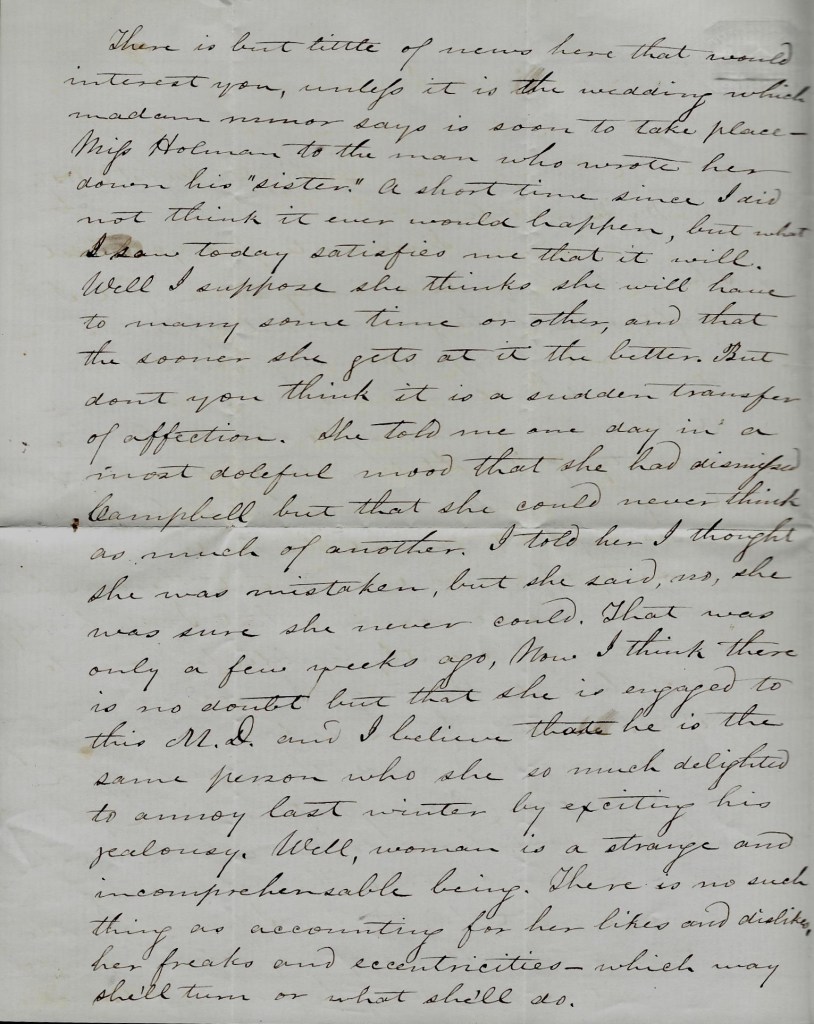 There is but little of news here that would
interest you, unless it is the wedding which
madam rumor says is soon to take place—
Miss Holman to the man who wrote her
down his "sister." A short time since I did
not think it ever would happen, but what
I saw today satisfies me that it will.
Well I suppose she thinks she will have
to marry some time or other, and that
the sooner she gets at it the better. But
dont you think it is a sudden transfer
of affection. She told me one day in a
most doleful mood that she had dismissed
Campbell but that she could never think
as much of another. I told her I thought
she was mistaken, but she said, no, she
was sure she never could. That was
only a few weeks ago, Now I think there
is no doubt but that she is engaged to
this M.D. and I believe that he is the
same person who she so much delighted
to annoy last winter by exciting his
jealousy. Well, woman is a strange and
incomprehensable being. There is no such
thing as accounting for her likes and dislikes,
her freaks and eccentricities— which way
she'll turn or what she'll do.